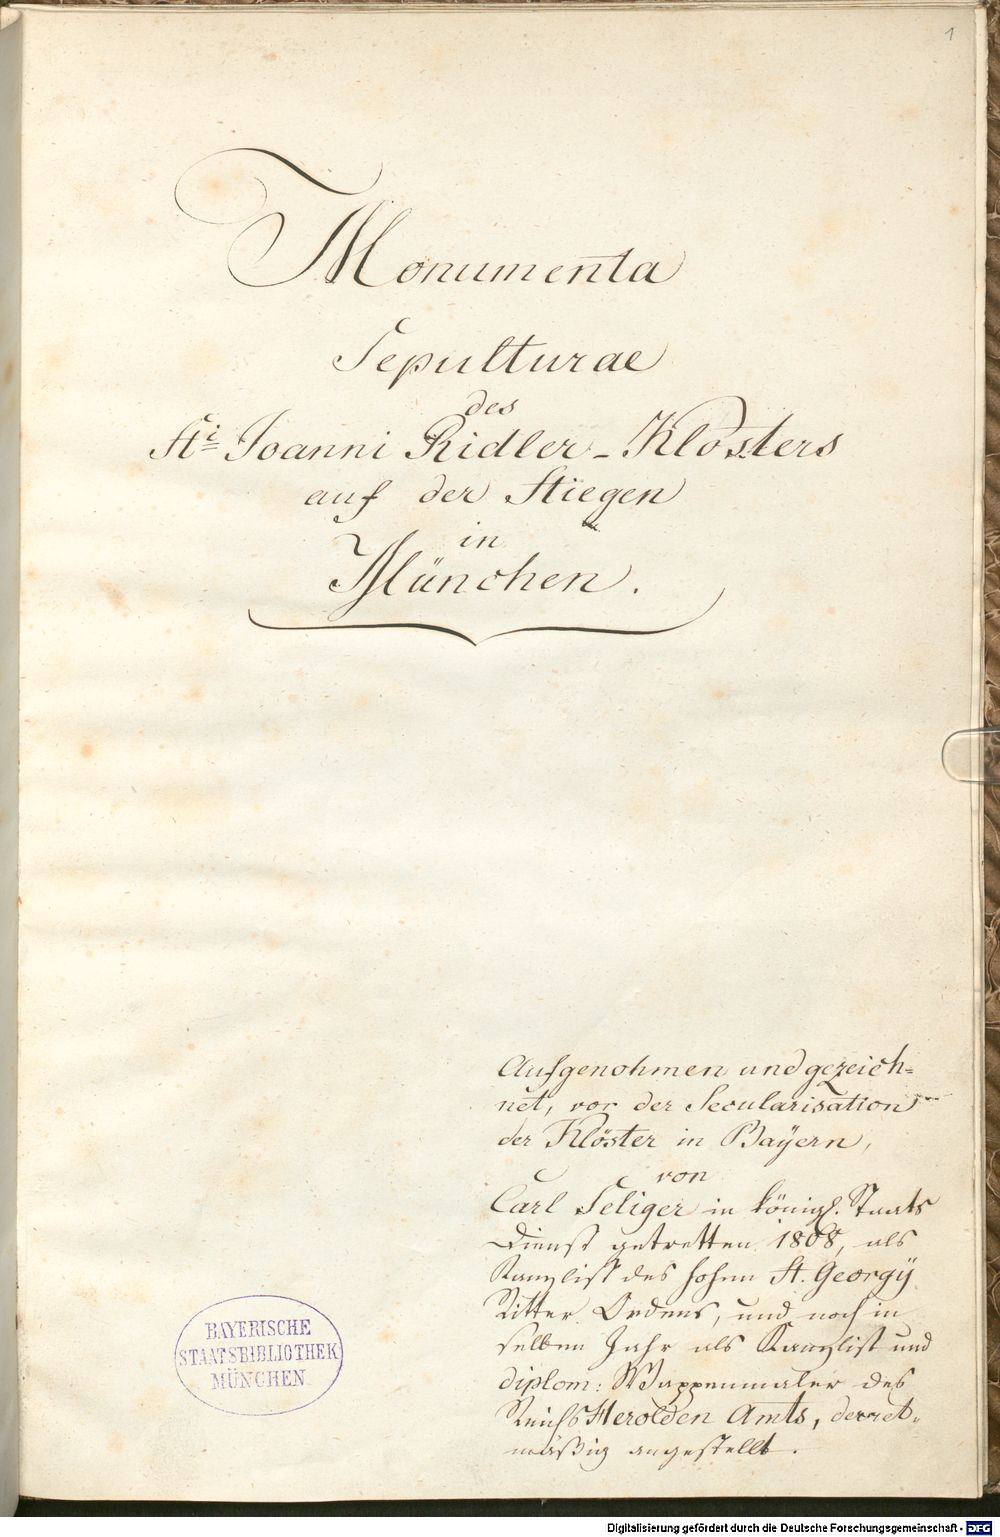 1
Monumenta
Sepulturae
des
Sti Joanni Ridler-Klosters
auf der Stiegen
in
München.
Aufgenohmen und gezeich=
net, vor der Secularisation
der Klöster in Bayern,
von
Carl Seliger in königl. Staats
Dienst getretten 1808, als
Kanzlist des hohen St. Georgÿ
Ritter Ordens, und noch in
selben Jahr als Kanzlist und
diplom: Wappenmaler des
Reichs Herolden Amts, decret=
mäßig angestellt.
BAYERISCHE
STAATSBIBLIOTHEK
MÜNCHEN
Digitalisierung gefördert durch die Deutsche Forschungsgemeinschaft - DFG